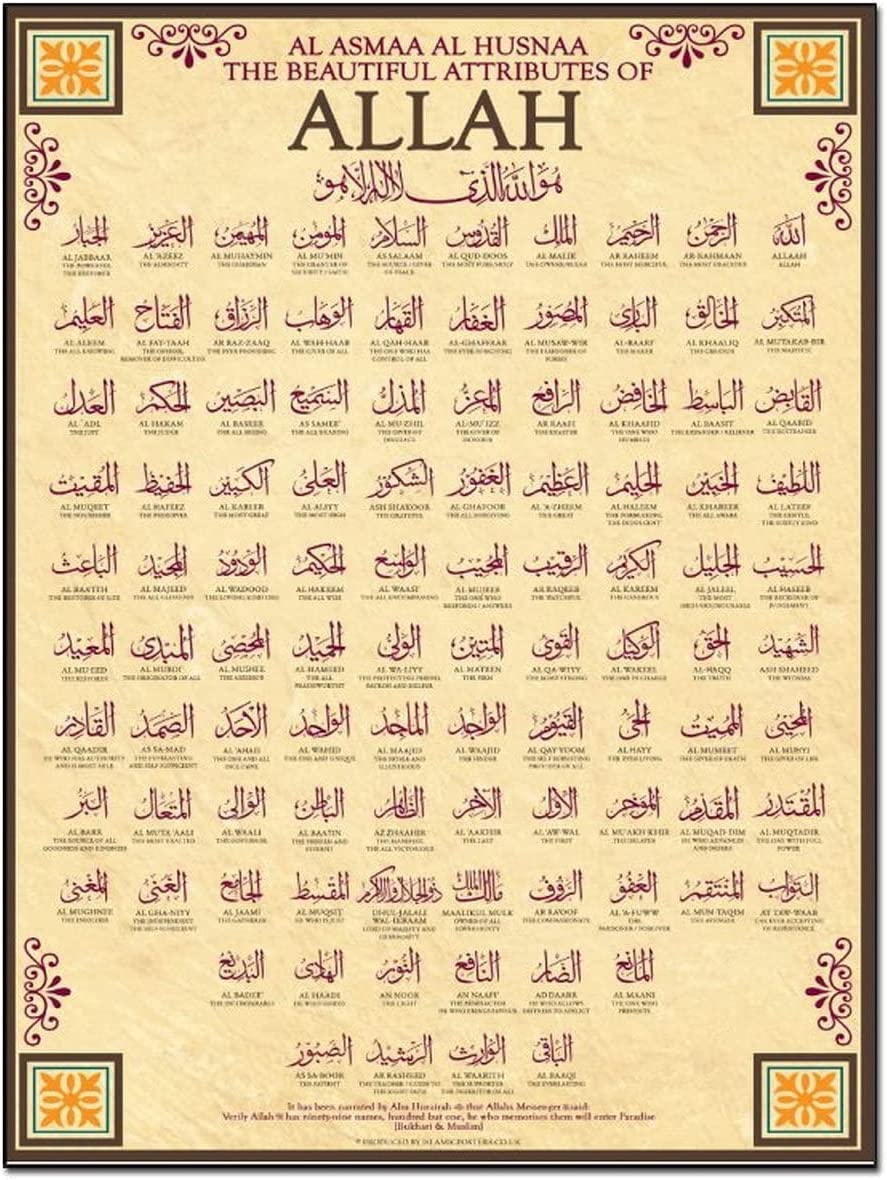 AL ASMAA AL HUSNAA
THE BEAUTIFUL ATTRIBUTES OF
ALLAH
هو الله الذي لا اله الا هو
الله الرحمن الرحيم الملك القدوس السلام المؤمن المهيمن العزيز الجبار
ALLAAH AR-RAHMAAN AR RAHEEM AL MALIK AL QUD-DOOS AS SALAAM AL MU'MIN AL MUHAYMIN AL 'AZEEZ AL JABBAAR
ALLAH THE MOST GRACIOUS THE MOST MERCIFUL THE GUARDIAN THE ALMIGHTY
المتكبر الخالق البارئ المصور الغفار القهار الوهاب الرزاق الفتاح العليم
AL MUTAKAB-BIR AL KHAALIQ AL-BAARI' AL MUSAW-WIR AL-GHAFFAAR AL QAH-HAAR AL WAH-HAAB AR RAZ-ZAAQ AL FAT-TAAH AL ALEEM
THE MAJESTIC THE CREATOR THE MAKER THE EVER FORGIVING THE ONE WHO HAS THE GIVER OF ALL THE EVER PROVIDING THE OPENER, THE ALL KNOWING
CONTROL OF ALL REMOVER OF DIFFICULTIES
القابض الباسط الخافض الرافع المعز المذل السميع البصير الحكم العدل
AL QAABID AL BAASIT AL KHAAFID AR RAAFI AL-MU'IZZ AL MU-ZHIL AS SAMEE' AL BASEER AL HAKAM AL 'ADL
THE ONE WHO THE EXALTER THE GIVER OF THE GIVER OF THE ALL HEARING THE ALL SEEING THE JUDGE THE JUST
اللطيف الخبير الحليم العظيم الغفور الشكور العلي الكبير الحفيظ المقيت
AL LATEEF AL KHABEER AL HALEEM AL 'A-ZHEEM AL GHAFOOR ASH SHAKOOR AL ALIYY AL KABEER AL HAFEEZ AL MUQEET
THE GENTLE, THE ALL AWARE THE GREAT THE ALL FORGIVING THE GRATEFUL THE MOST HIGH THE MOST GREAT THE PRESERVER THE NOURISHER
الحسيب الجليل الكريم الرقيب المجيب الواسع الحكيم الودود المجيد الباعث
AL HASEEB AL JALEEL AL KAREEM AR RAQEEB AL MUJEEB AL WAASI' AL HAKEEM AL WADOOD AL MAJEED AL BAATTH
THE MOST THE GENEROUS THE WATCHFUL THE ONE WHO THE ALL ENCOMPASSING THE ALL WISE THE ALL GLORIOUS
الشهيد الحق الوكيل القوي المتين الولي الحميد المحصي المبدئ المعيد
ASH SHAHEED AL-HAQQ AL WAKEEL AL QA-WIYY AL MATEEN AL WA-LIYY AL HAMEED AL MUSHEE AL MUBDI' AL MU'EED
THE WITNESS THE TRUTH THE ONE IN CHARGE THE MOST STRONG THE FIRM THE ALL THE ORIGINATOR OF ALL THE RESTORER
PRAISEWORTHY
المحيي المميت الحي القيوم الواجد الماجد الواحد الأحد الصمد القادر
AL MUHYI AL MUMEET AL HAYY AL QAY YOOM AL WAAJID AL MAAJID AL WAHID AL 'AHAD AS SA-MAD AL QAADIR
THE GIVER OF LIFE THE GIVER OF DEATH THE EVER LIVING THE FINDER THE NOBLE AND THE ONE AND UNIQUE THE ONE AND ALL THE EVERLASTING HE WHO HAS AUTHORITY
ILLUSTRIOUS AND SELF SUFFICIENT
المقتدر المقدم المؤخر الأول الآخر الظاهر الباطن الوالي المتعال البر
AL MUQTADIR AL MUQAD-DIM AL MU'AKH-KHIR AL 'AW-WAL AL 'AAKHIR AZ ZHAAHIR AL BAATIN AL WAALI AL MUTA'AALI AL BARR
THE ONE WITH FULL HE WHO ADVANCES THE DELAYER THE FIRST THE LAST THE MANIFEST, THE HIDDEN AND THE GOVERNOR THE MOST EXALTED THE SOURCE OF ALL
POWER THE ALL VICTORIOUS GOODNESS AND KINDNESS
التواب المنتقم العفو الرؤوف مالك الملك ذو الجلال والإكرام المقسط الجامع الغني المغني
AT TAW-WAAB AL MUN-TAQIM AL 'A-FUWW AR RA'OOF MAALIKUL MULK DHUL-JALALI AL MUQSIT AL JAAMI AL GHA-NIYY AL MUGHNEE
WAL-IKRAAM
THE EVER ACCEPTING THE AVENGER THE THE COMPASSIONATE OWNER OF ALL LORD OF MAJESTY AND HE WHO IS JUST THE GATHERER THE INDEPENDENT THE ENRICHER
OF REPENTANCE PARDONER / FORGIVER SOVEREIGNTY GENEROSITY
المانع الضار النافع النور الهادي البديع
AL MAANI AD DAARR AN NAAFI' AN NOOR AL HAADI AL BADEE'
THE ONE WHO THE LIGHT HE WHO GUIDES
PREVENTS
الباقي الوارث الرشيد الصبور
AL BAAQI AL WAARITH AR RASHEED AS SA-BOOR
THE EVERLASTING THE PATIENT
THE INHERITOR OF ALL
It has been narrated by Abu Hurairah that Allahs Messenger said:
Verily Allah has ninety-nine names, hundred but one, he who memorises them will enter Paradise
[Bukhari & Muslim]
© PRODUCED BY ISLAMICPOSTERS.CO.UK